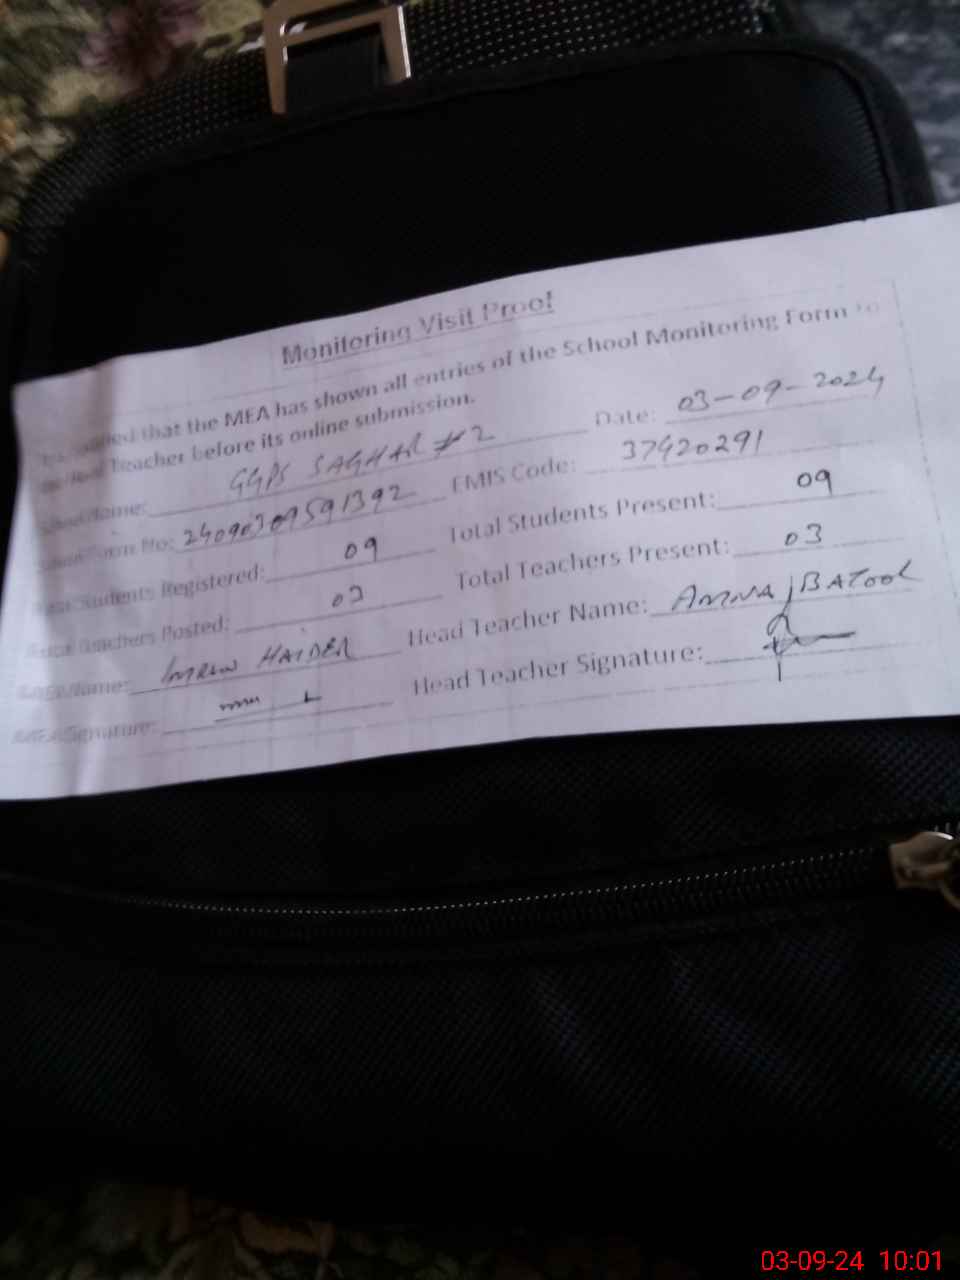 Monitoring Visit Proof
that the MEA has shown all entries of the School Monitoring Form to
Teacher before its online submission.
Name: GGPS SAGHAR #2 Date: 03-09-2024
Form No: 24090309591392 EMIS Code: 37420291
Students Registered: 09 Total Students Present: 09
Teachers Posted: 03 Total Teachers Present: 03
Name: IMRAN HAIDER Head Teacher Name: AMNA BATOOL
MEA Signature: Head Teacher Signature:
03-09-24 10:01